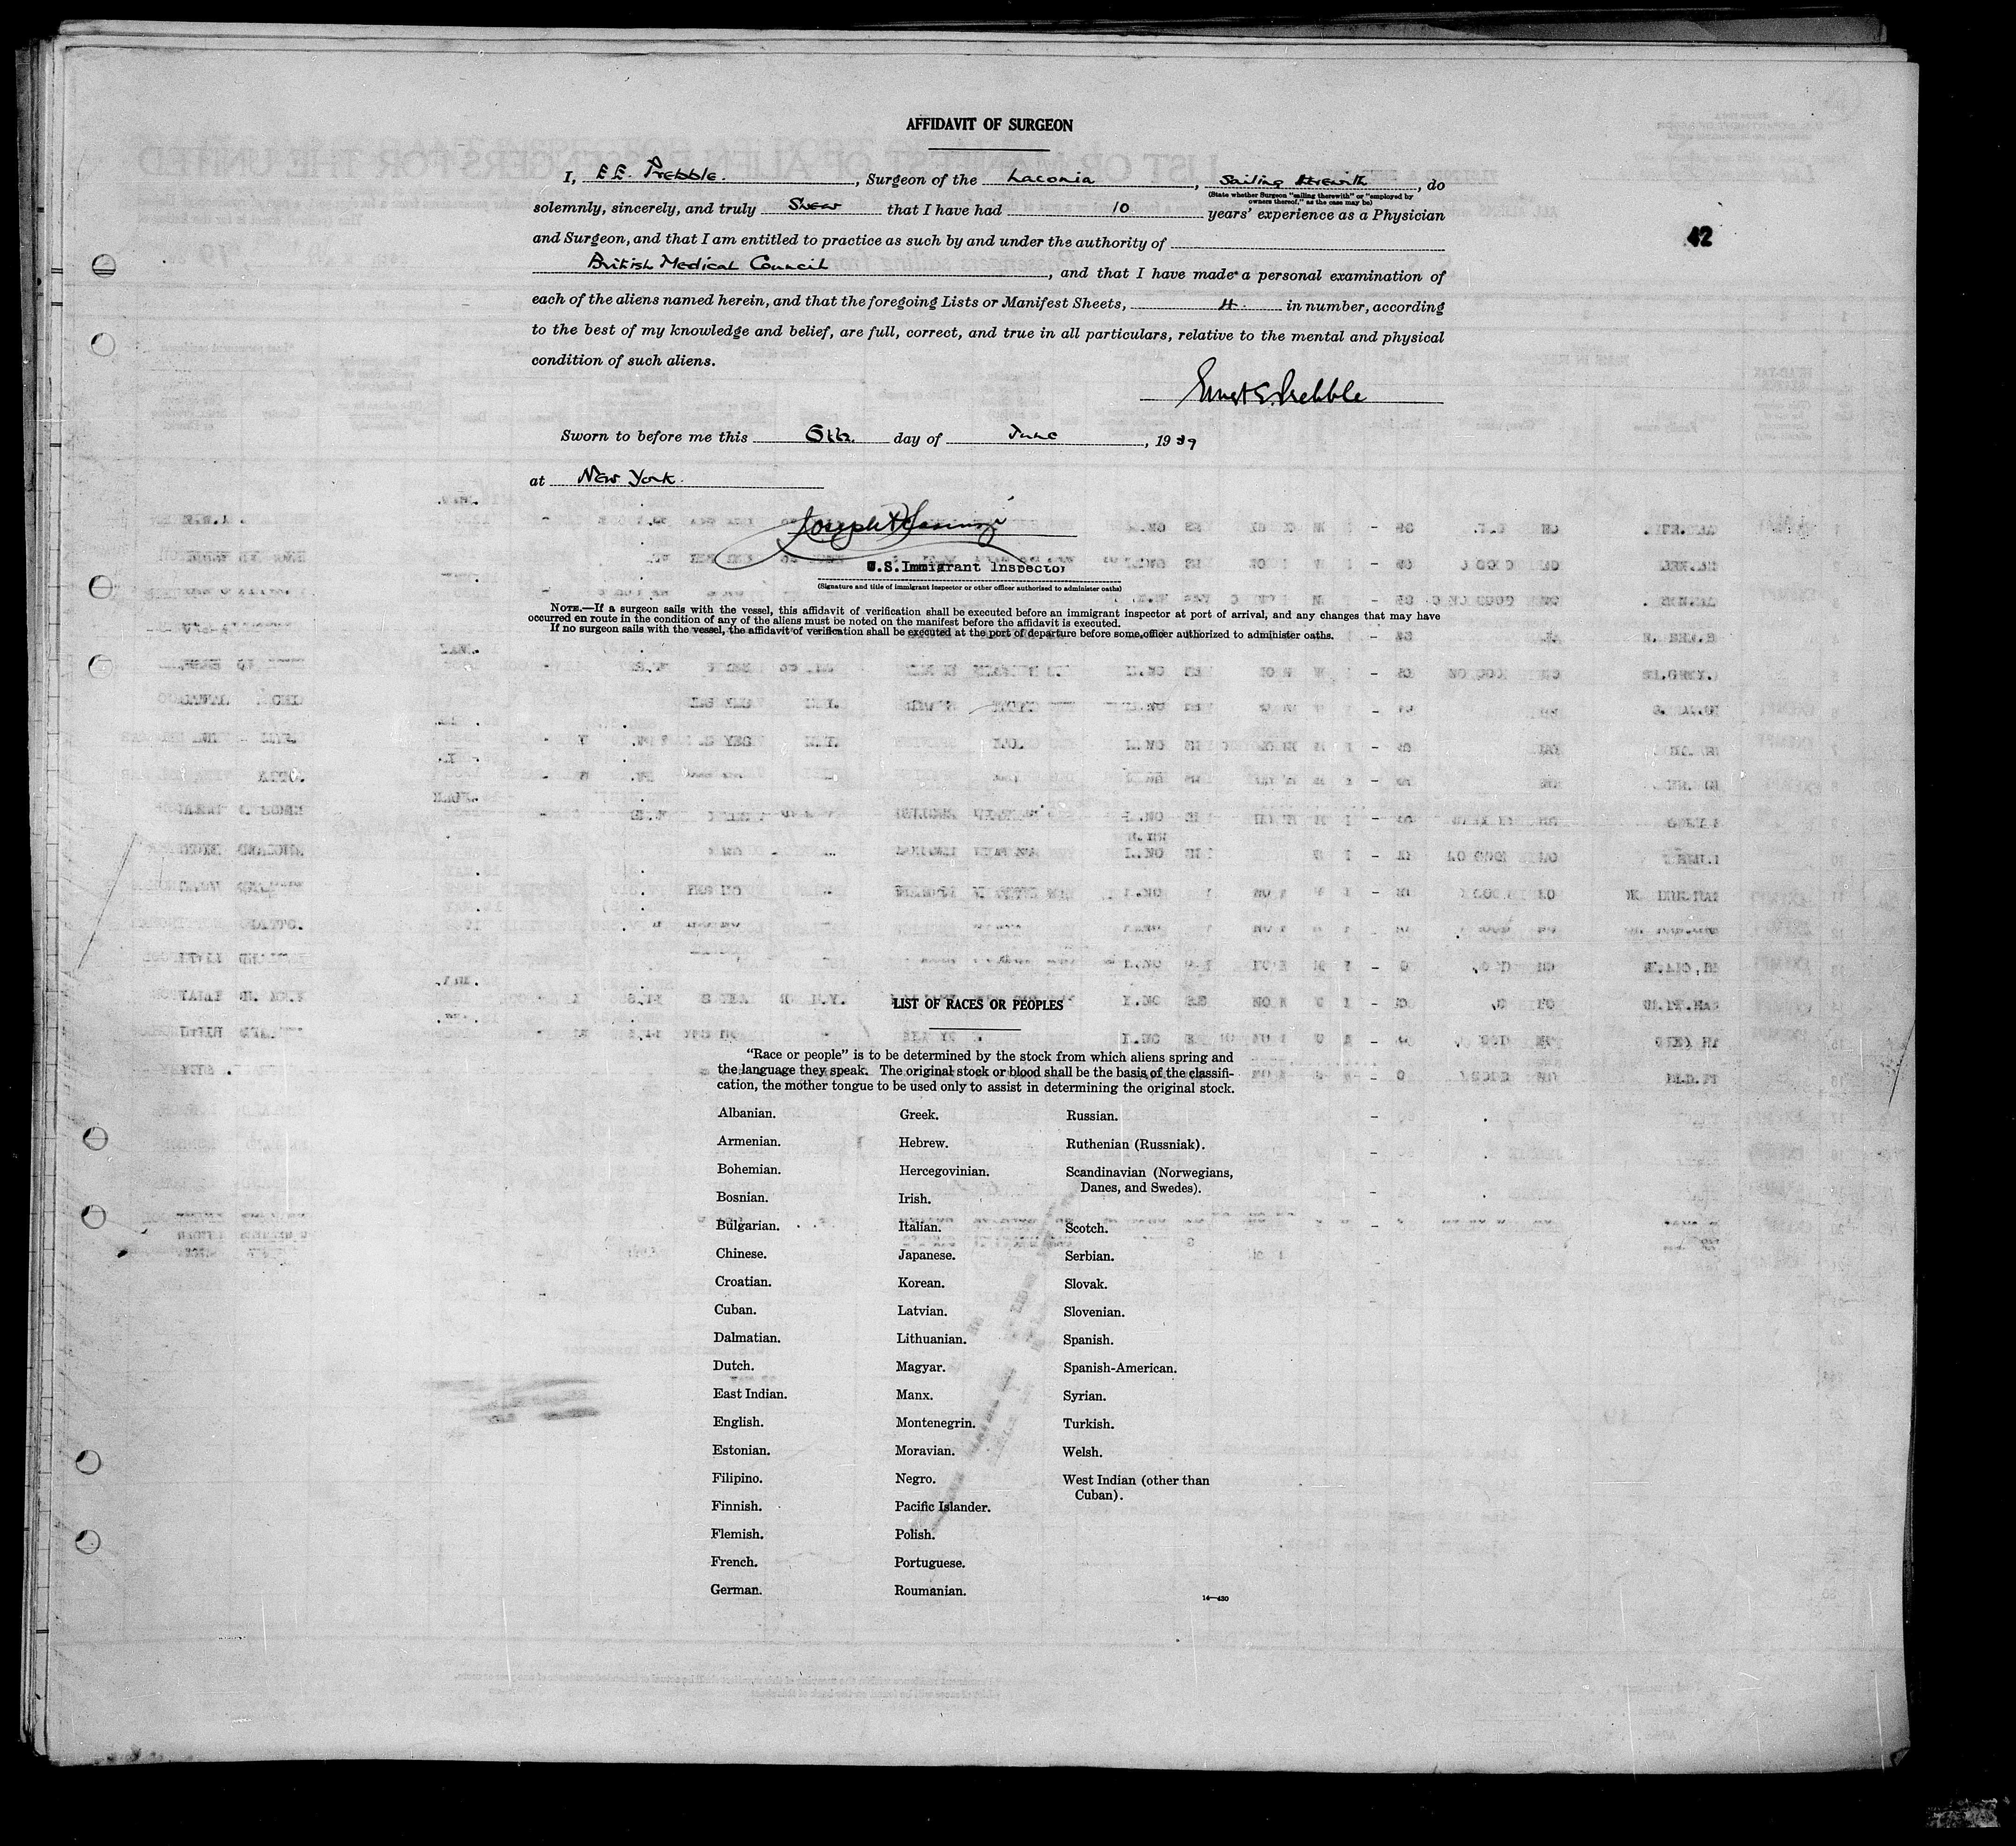 AFFIDAVIT OF SURGEON
I, E.E. Prebble., Surgeon of the Laconia, Sailing therewith, do
(State whether Surgeon "sailing therewith" or "employed by
owners thereof," as the case may be)
solemnly, sincerely, and truly Swear that I have had 10 years' experience as a Physician
42
and Surgeon, and that I am entitled to practice as such by and under the authority of
British Medical Council, and that I have made a personal examination of
each of the aliens named herein, and that the foregoing Lists or Manifest Sheets, 4. in number, according
to the best of my knowledge and belief, are full, correct, and true in all particulars, relative to the mental and physical
condition of such aliens.
Ernest E. Prebble
Sworn to before me this 6th. day of June, 1939
at New York.
Joseph
U.S. Immigrant Inspector
(Signature and title of immigrant inspector or other officer authorised to administer oaths)
NOTE.—If a surgeon sails with the vessel, this affidavit of verification shall be executed before an immigrant inspector at port of arrival, and any changes that may have
occurred en route in the condition of any of the aliens must be noted on the manifest before the affidavit is executed.
If no surgeon sails with the vessel, the affidavit of verification shall be executed at the port of departure before some officer authorized to administer oaths.
LIST OF RACES OR PEOPLES
"Race or people" is to be determined by the stock from which aliens spring and
the language they speak. The original stock or blood shall be the basis of the classifi-
cation, the mother tongue to be used only to assist in determining the original stock.
Albanian.
Armenian.
Bohemian.
Bosnian.
Bulgarian.
Chinese.
Croatian.
Cuban.
Dalmatian.
Dutch.
East Indian.
English.
Estonian.
Filipino.
Finnish.
Flemish.
French.
German.
Greek.
Hebrew.
Hercegovinian.
Irish.
Italian.
Japanese.
Korean.
Latvian.
Lithuanian.
Magyar.
Manx.
Montenegrin.
Moravian.
Negro.
Pacific Islander.
Polish.
Portuguese.
Roumanian.
Russian.
Ruthenian (Russniak).
Scandinavian (Norwegians,
Danes, and Swedes).
Scotch.
Serbian.
Slovak.
Slovenian.
Spanish.
Spanish-American.
Syrian.
Turkish.
Welsh.
West Indian (other than
Cuban).
14—430